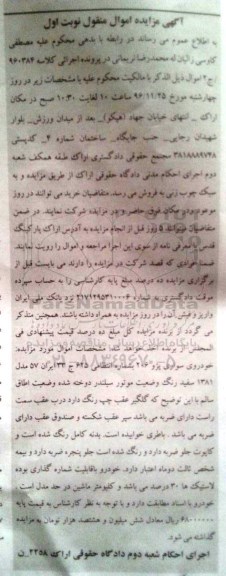 آگهی مزایده اموال منقول نوبت اول
به اطلاع عموم می رساند در رابطه با بدهی محکوم علیه مصطفی
کاوسی رانان له محمدرضا نریمانی در پرونده اجرائی کلاسه ۹۶۰۳۸۴
ج۲ اموال ذیل الذکر با مالکیت محکوم علیه با مشخصات زیر در روز
چهارشنبه مورخ ۹۶/۱۱/۲۵ ساعت ۱۰ لغایت ۱۰:۳۰ صبح در مکان
اراک _ انتهای خیابان جهاد (هپکو)_ بعد از میدان ورزش_ بلوار
شهیدان رجایی_ جنب جایگاه_ ساختمان شماره ۴_ کدپستی
۳۸۱۸۸۸۹۷۳۸ مجتمع حقوقی دادگستری اراک طبقه همکف شعبه
دوم اجرای احکام مدنی دادگاه حقوقی اراک از طریق مزایده و به
سبک چوب زنی به فروش می رسد. متقاضیان خرید می توانند در روز
موعود و مکان فوق حاضر و در مزایده شرکت نمایند. در ضمن
متقاضیان میتوانند ۵ روز قبل از انجام مزایده به آدرس اراک پارکینگ
قدس با معرفی نامه از سوی این اجرا مراجعه و اموال را رویت نمایند.
ضمنا افرادی که قصد شرکت در مزایده را دارند می بایست قبل از
برگزاری مزایده ده درصد مبلغ پایه کارشناسی را به حساب سپرده
دادگستری به شماره نزد بانک ملی ایران
واریز و فیش آن را در روز مزایده به همراه داشته باشند. همچنین متذکر
می گردد از برنده مزایده کل مبلغ ده درصد قیمت پیشنهادی فی
المجلس اخذ خواهد شد. مشخصات اموال مورد مزایده:
خودروی سواری پژو ۲۰۶ بشماره انتظامی ۶۲۵ ج ۳۳ ایران ۵۷ مدل
۱۳۸۱ سفید رنگ وضعیت موتور سیلندر دوخته شده وضعیت اطاق
سالم با این توضیح که گلگیر عقب چپ رنگ دارد درب عقب سمت
راست دارای ضربه می باشد سپر عقب شکسته و صندوق عقب دارای
ضربه می باشد. باطری خوابیده است. بدنه کامل رنگ شده است و
کاپوت جلو ضربه دارد و رنگ شده است جلو پنجره ضربه دارد و بیمه
شخص ثالث دوماه اعتبار دارد. خودرو باقابلیت شماره گذاری بوده
لاستیک ها ۳۰ درصد می باشد و کیلومتر ماشین در حد مدل است.
خودرو با اسناد مطابقت دارد و با توجه به نظر کارشناس به قیمت پایه
۶۸۰۰۰۰۰۰ ریال معادل شش میلیون و هشتصد، هزار تومان به مزایده
گذاشته می شود.
اجرای احکام شعبه دوم دادگاه حقوقی اراک ۲۲۵۸_ن